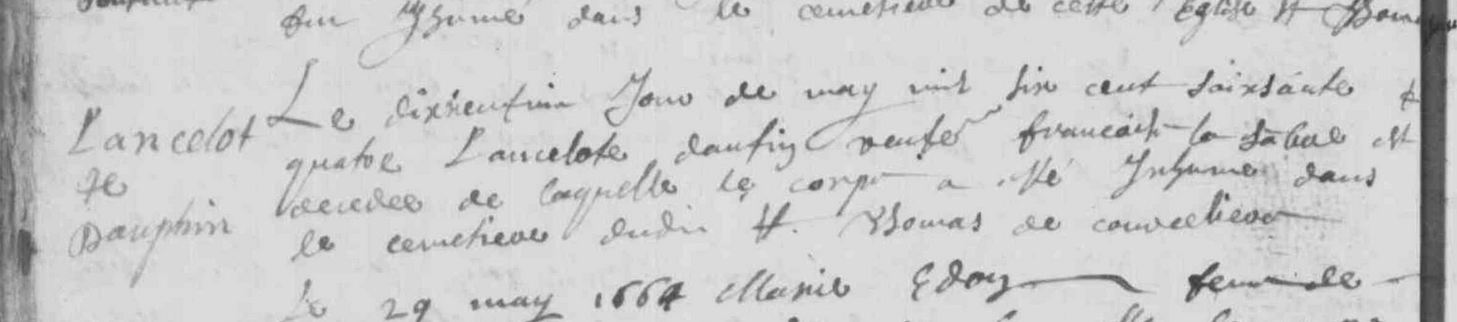 fut Jhumé dans le cemetiere de cette Eglise St
Lancelot
te
Dauphin
Le dixneufvie Jour de may mil six cent soixsante &
quatre Lancelote daufin veufe francois la est
decedee de laquelle le corps a esté Jnhumé dans
le cemetiere dudit St. Thomas de courceliere
Le 29 may 1664 Marie Edon femme de